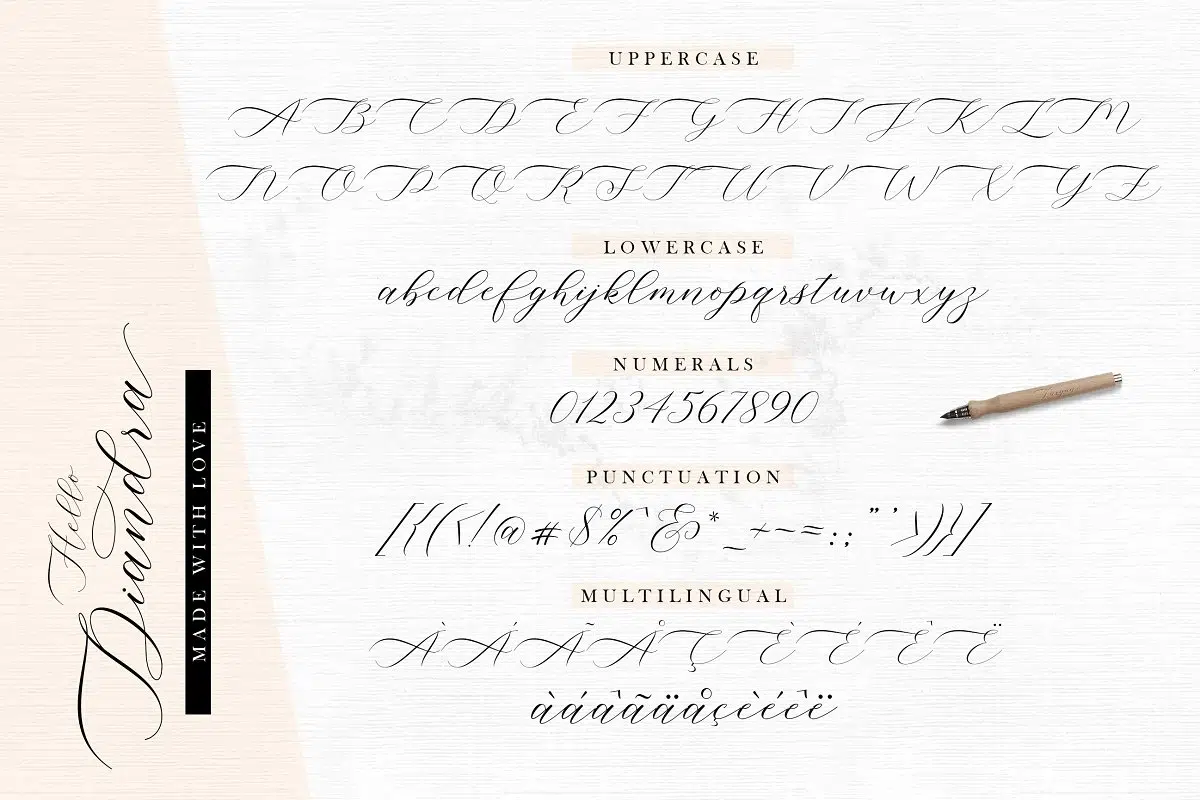 UPPERCASE
A B C D E F G H I J K L M
N O P Q R S T U V W X Y Z
LOWERCASE
abcdefghijklmnopqrstuvwxyz
NUMERALS
01234567890
PUNCTUATION
[{(<!@#$%^&*_+-=:;"'>)}]
MULTILINGUAL
À Á Ã Å Ç È É Ê Ë
àáâãäåçèéêë
Hello
Diandra
MADE WITH LOVE